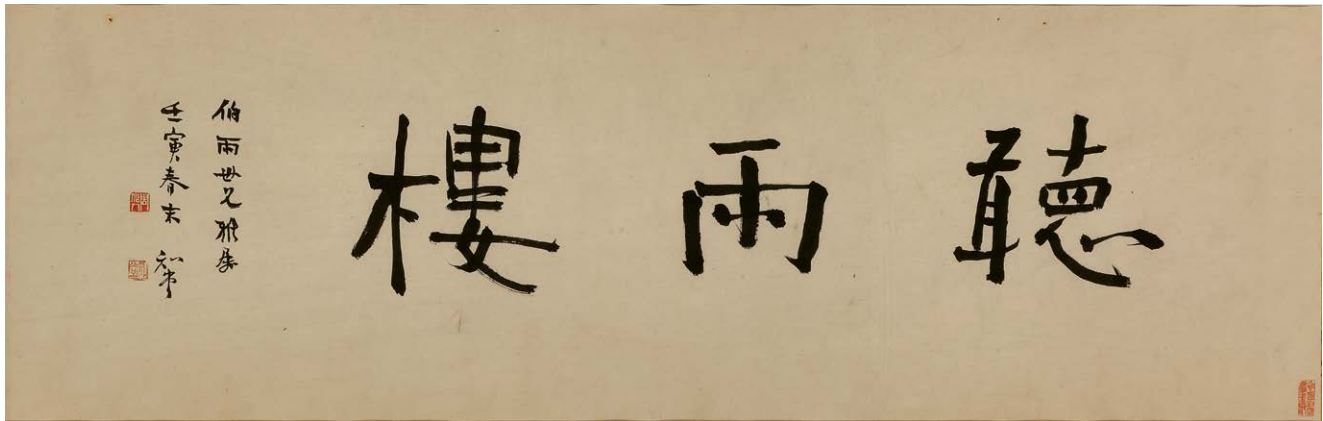 聽雨樓
伯雨世兄雅屬
壬寅春末 知堂